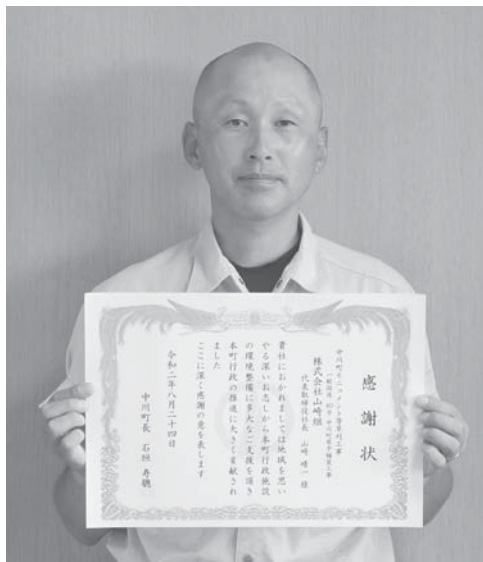 感謝状
中川町モニュメント等草刈工事
一般国道40号 中川町
株式会社山崎組
代表取締役社長 山崎晴一様
貴社におかれましては地域を思い
やる深いお志しから本町行政施設
の環境整備に多大なご支援を頂き
本町行政の推進に大きく貢献され
ました
ここに深く感謝の意を表します
令和二年八月二十四日
中川町長 石垣寿聰